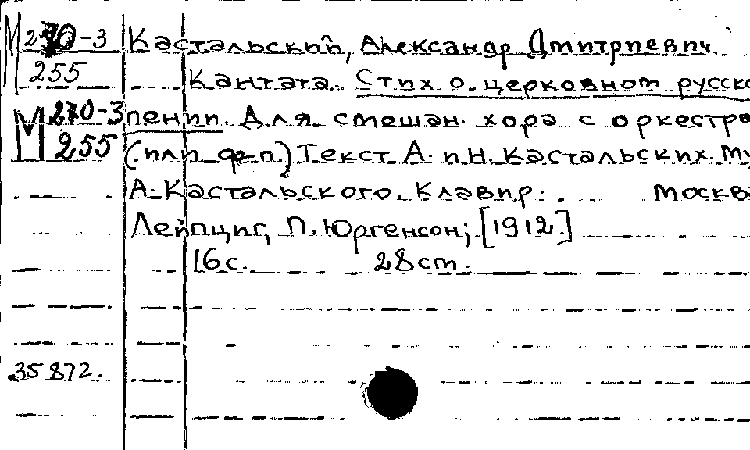 М 270-3 Кастальский, Александр Дмитриевич.
255 Кантата. Стих о церковном русско
М 270-3 пении. Для смешан. хора с оркестро
255 (или ф-п.) Текст А. и Н. Кастальских. Му
А. Кастальского. Клавир. Москв
Лейпциг, П. Юргенсон, [1912]
16 с. 28 cm.
35872.